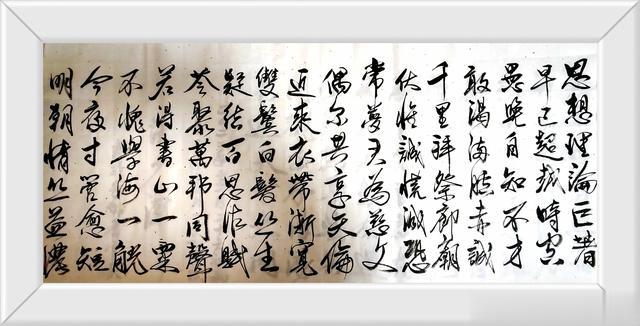 思想理論巨著
早已超越時空
愚鈍自知不才
敢渴海勝赤誠
千里拜祭廊廟
伏惟誠慌誠恐
常夢天為慈父
偶尔共享天倫
近來衣帶漸寬
雙鬢白髮丛生
凝结百思作賦
荟聚萬邦同聲
若得書山一粟
不愧學海一觥
今夜寸管愈短
明朝情丝益濃